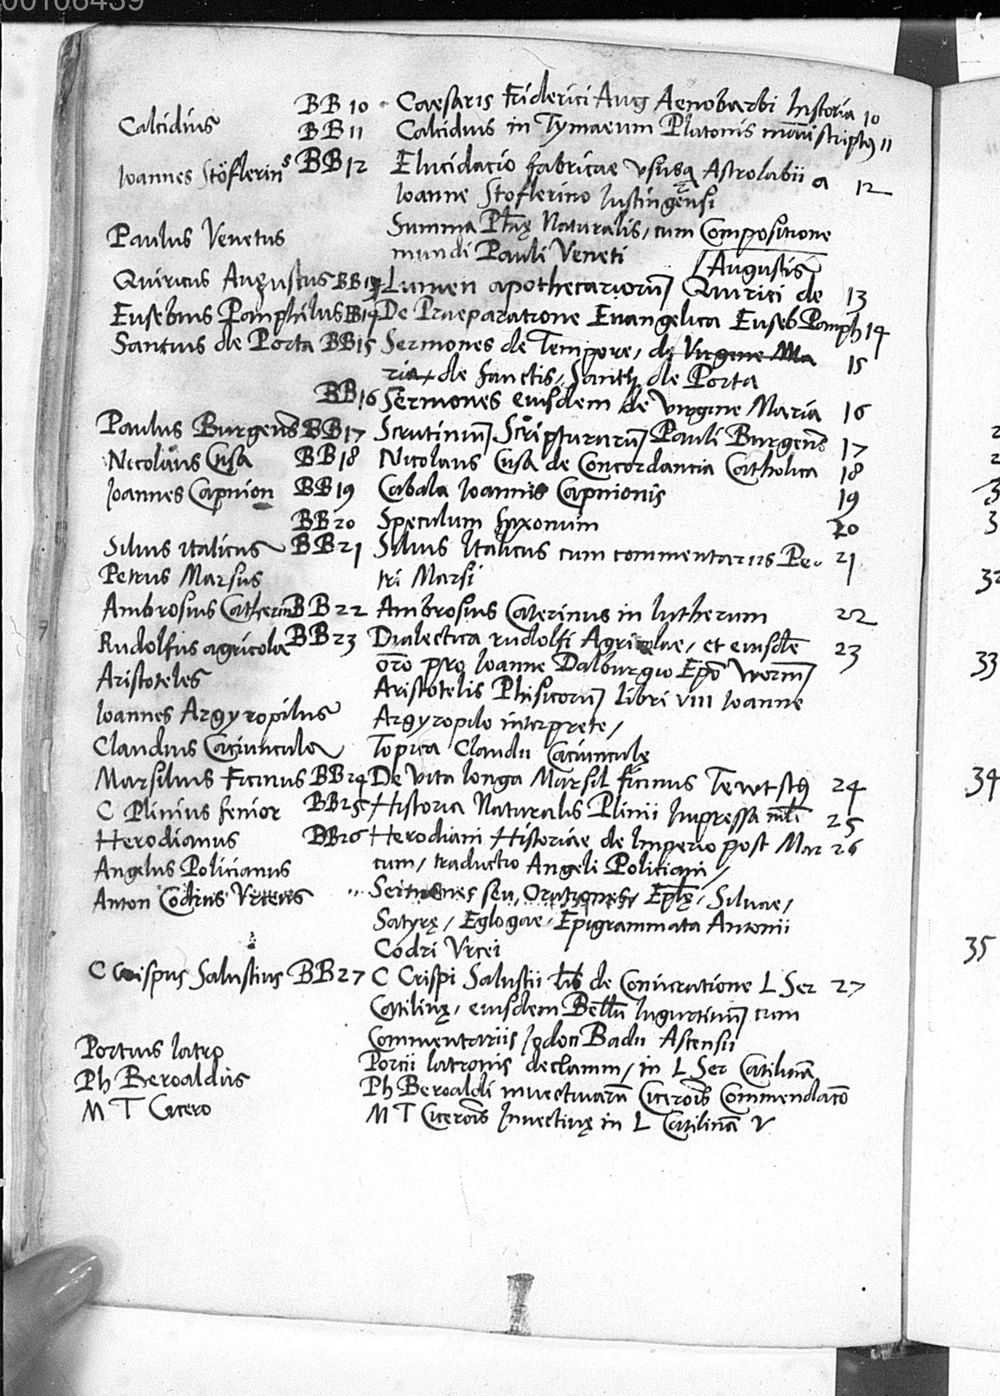 00106439
BB 10 Caesaris Friderici Aug Aenobarbi historia 10
Calcidius BB 11 Calcidius in Tymaeum Platonis manuscriptus 11
Ioannes Stöflerinus BB 12 Elucidacio fabricae ususque Astrolabii a 12
Ioanne Stoflerino Iustingensi
Paulus Venetus Summa Naturalis, cum Compositione
mundi Pauli Veneti
[Augustis
Quiricus Augustus BB 13 Lumen apothecariorum Quirici de 13
Eusebius Pamphilus BB 14 De Praeparatione Euangelica Euseb Pamph 14
Sanctius de Porta BB 15 Sermones de Tempore, de Virgine Ma 15
ria, de sanctis, Santii de Porta
BB 16 Sermones eiusdem de virgine Maria 16
Paulus Burgens BB 17 Scrutinium Scripturarum Pauli Burgens 17
Nicolaus Cusa BB 18 Nicolaus Cusa de Concordancia Catholica 18
Ioannes Capnion BB 19 Cabala Ioannis Capnionis 19
BB 20 Speculum Saxonum 20
Silius italicus BB 21 Silius Italicus cum commentariis Pe- 21
Petrus Marsus tri Marsi
Ambrosius Catherin BB 22 Ambrosius Caterinus in lutherum 22
Rudolfus agricola BB 23 Dialectica rudolfi Agricolae, et eiusdē 23
orō pro Ioanne Dalburgio Epō Worm
Aristoteles Aristotelis Phisicorum Libri VIII Ioanne
Ioannes Argyropilus Argyropilo interprete,
Claudius Caciuncula Topica Claudii Caciunculę
Marsilius Ficinus BB 24 De vita longa Marsil ficinus Tewtsch 24
C Plinius senior BB 25 Historia Naturalis Plinii Impressa 25
Herodianus BB 26 Herodiani Historiae de Imperio post Mar 26
Angelus Policianus cum, traductio Angeli Politiani,
Anton Codrus Urceus Sermones seu Orationes, Eplę, Siluae,
Satyrę, Eglogae, Epigrammata Antonii
Codri Urcei
C Crispus Salustius BB 27 C Crispi Salustii lib de Coniuratione L Ser 27
Catilinę, eiusdem Bellū Iugurtinum cum
Commentariis Iodoci Badii Ascensii
Portius latro Porcii latronis declamm, in L Ser Catilinā
Ph Beroaldus Ph Beroaldi inuectiuarū Cicerōis Commendacō
M T Cicero M T Cicerōis Inuectiuę in L Catilinā V
33
34
35